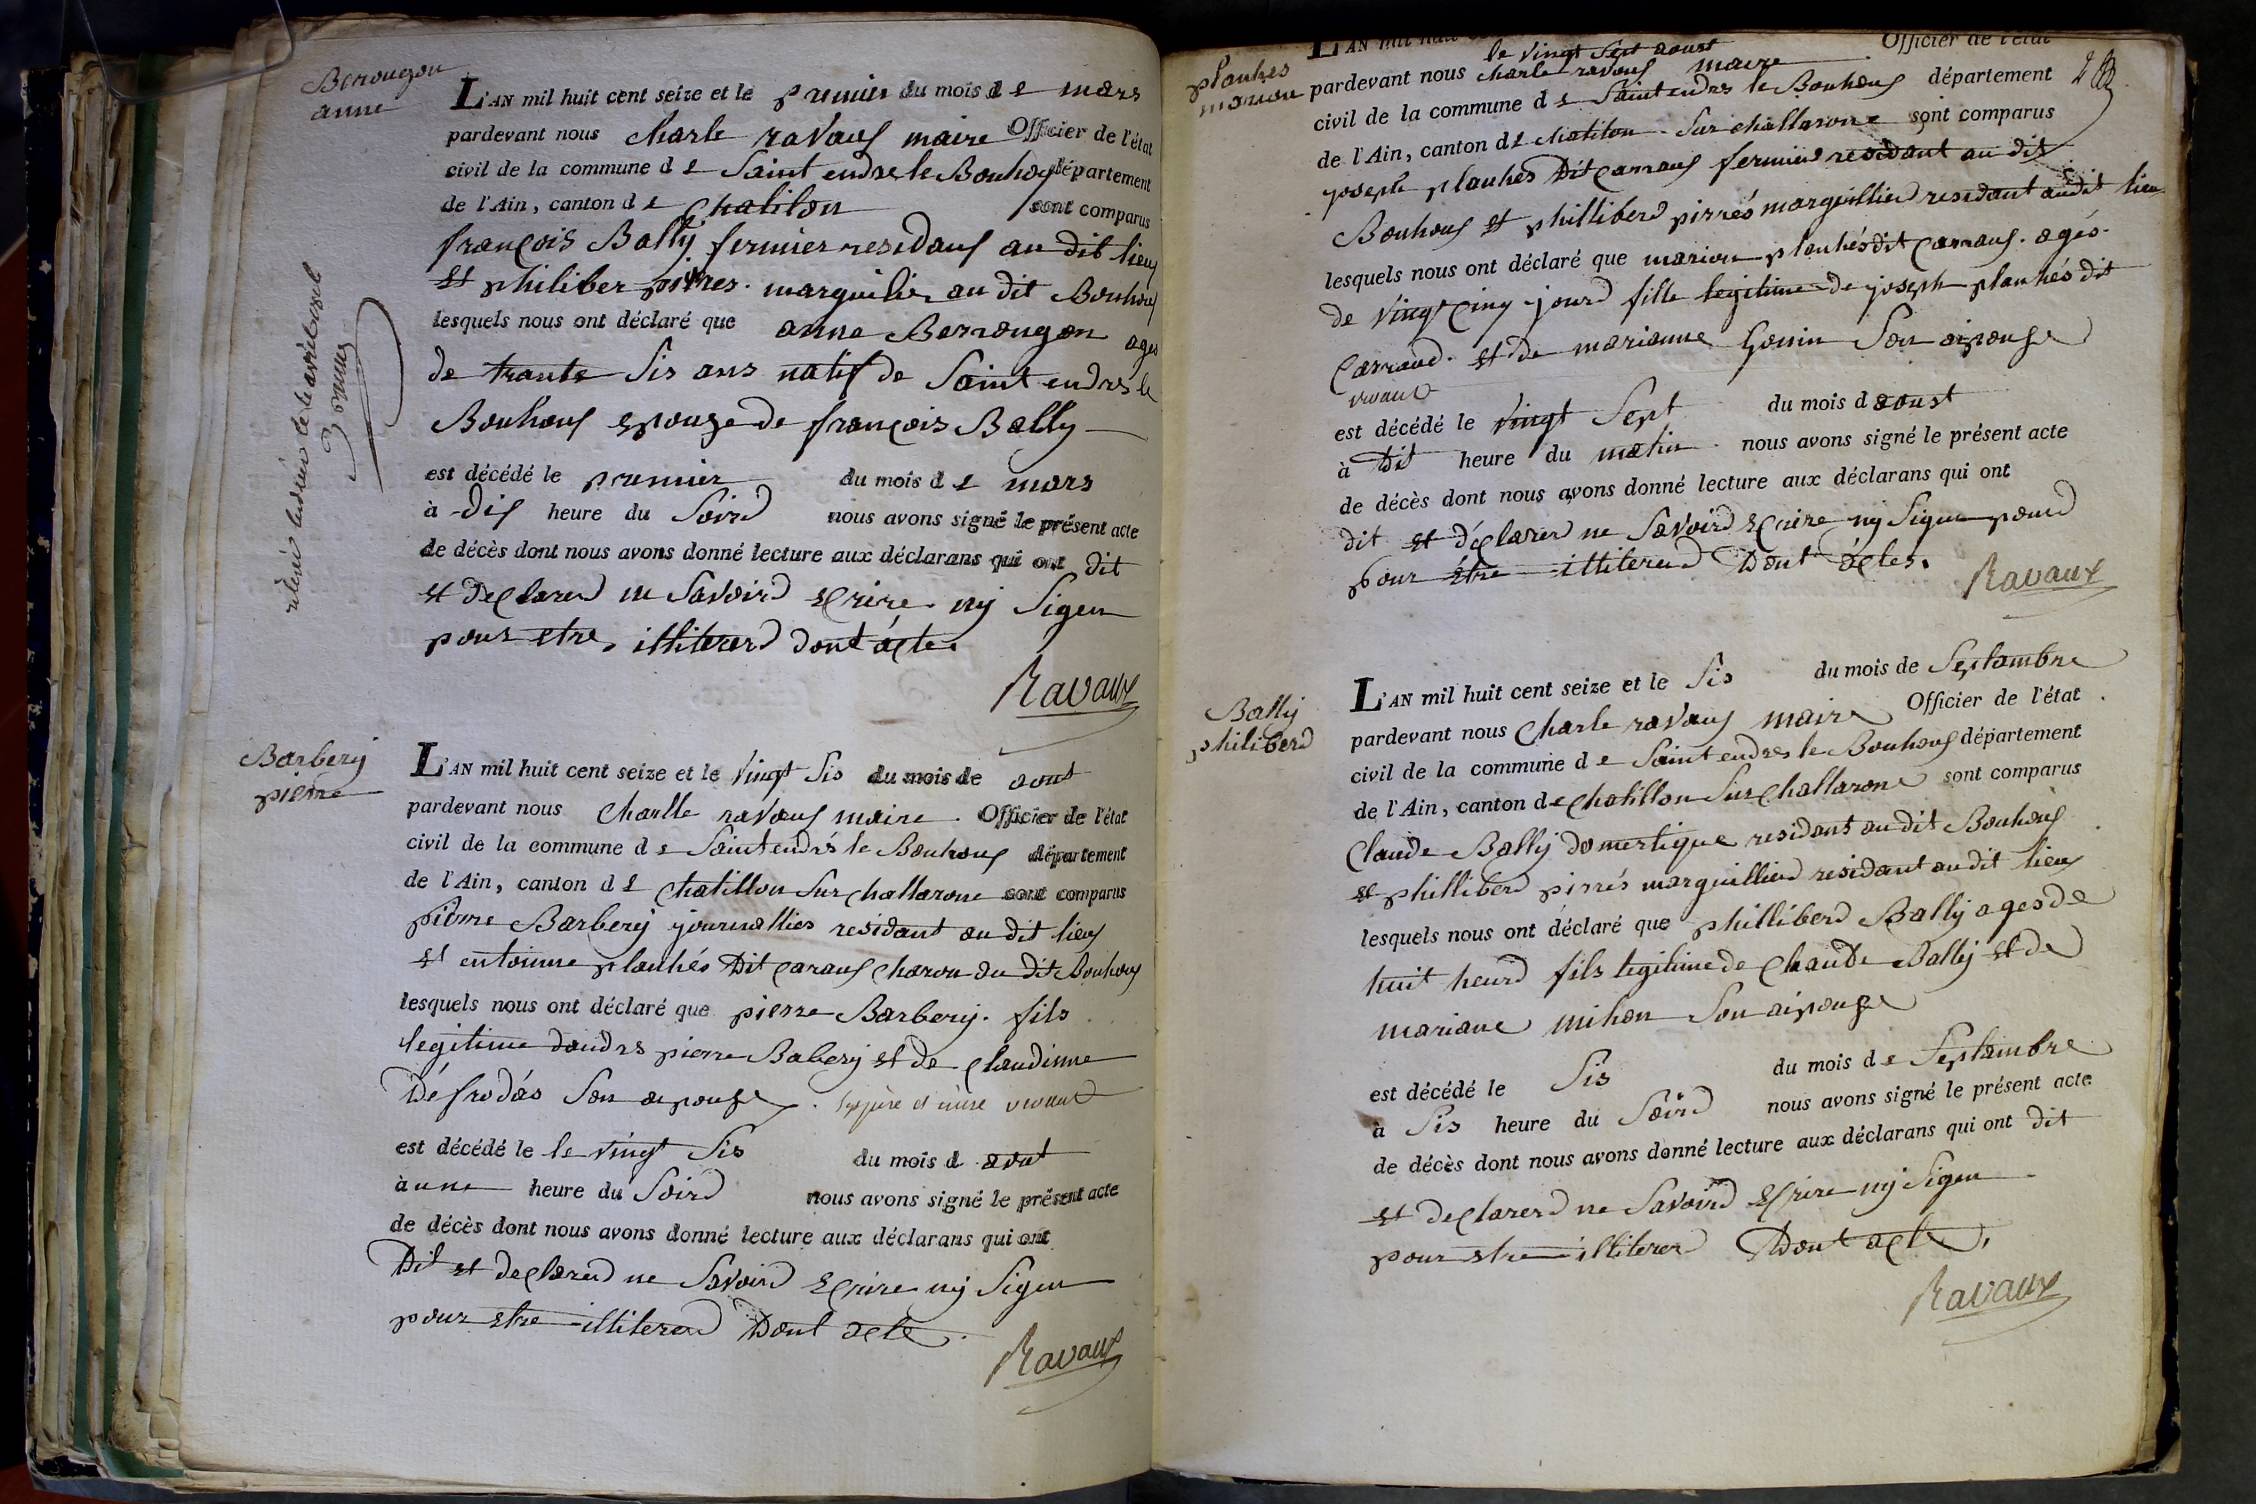 Berrougon
anne
L'AN mil huit cent seize et le premier du mois de mars
pardevant nous Charle ravaus maire Officier de l'état
civil de la commune de Saint endre le Bouhous département
de l'Ain, canton de Chatilon sont comparus
françois Bally fermier residans au dit lieu
et philiber pirres. marguilier au dit Bouhous
lesquels nous ont déclaré que anne Berrougon ages
de trante Sis ans natif de Saint endres le
Bouhous epouze de françois Bally
est décédé le premier du mois de mars
à dis heure du Soird nous avons signé le présent acte
de décès dont nous avons donné lecture aux déclarans qui ont dit
et declarerd ne Savoird ecrire ny Signer
pour etre illiterer dont acte.
Ravaux
Barbery
pierre
L'AN mil huit cent seize et le vingt Sis du mois de aout
pardevant nous Charlle ravaus maire. Officier de l'état
civil de la commune de Saint endrés le Bouhous département
de l'Ain, canton de Chatillon Sur Challarone sont comparus
pierre Barbery journallier residant au dit lieu
et entoinne planhés Dit Caraus Charon du dit Bouhous
lesquels nous ont déclaré que pierre Barbery. fils
legitime dendrs pierre Babery et de Claudinne
Défrodas Son epouze. père et mère vivant
est décédé le le vingt Sis du mois d aout
à une heure du Soird nous avons signé le présent acte
de décès dont nous avons donné lecture aux déclarans qui ont
Dit et declarerd ne Savoird ecrire ny Signer
pour etre illiterer Dont acte.
Ravaux
planhes
marion
L'AN mil huit
le vingt Sept aoust
pardevant nous Charle ravaus maire Officier de l'état
civil de la commune de Saint endres le Bouhous département
de l'Ain, canton de Chatilon Sur Challarone sont comparus
joseph planhes Dit Carraus fermier residant au dit
Bouhous et philliberd pirrés marguillierd residant au dit lieu
lesquels nous ont déclaré que marion planhés dit Carraus. agés.
de vingt cinq jourd fille legitime de joseph planhés dit
Carraud. et de marianne Gonin Son aipouze
vivant
est décédé le vingt Sept du mois d aoust
à Dit heure du matin. nous avons signé le présent acte
de décès dont nous avons donné lecture aux déclarans qui ont
dit et déclarerd ne Savoird ecrire ny Signer pourd
pour étre illiterer Dont actes.
Ravaux
Bally
philiberd
L'AN mil huit cent seize et le Sis du mois de Septambre
pardevant nous Charle ravaus maire Officier de l'état
civil de la commune de Saint endres le Bouhous département
de l'Ain, canton de Chatillon Sur Challarone sont comparus
Claude Bally domertique residant au dit Bouhous
et philliberd pirrés marguillierd residant au dit lieu
lesquels nous ont déclaré que philliberd Bally ages de
huit heurd fils legitime de Claude Bally et de
mariane mihon Son aipouze
est décédé le Sis du mois de Septambre
à Sis heure du Soird nous avons signé le présent acte
de décès dont nous avons donné lecture aux déclarans qui ont dit
et declarerd ne Savoird ecrire ny Signer
pour etre illiterer Dont acte.
Ravaux